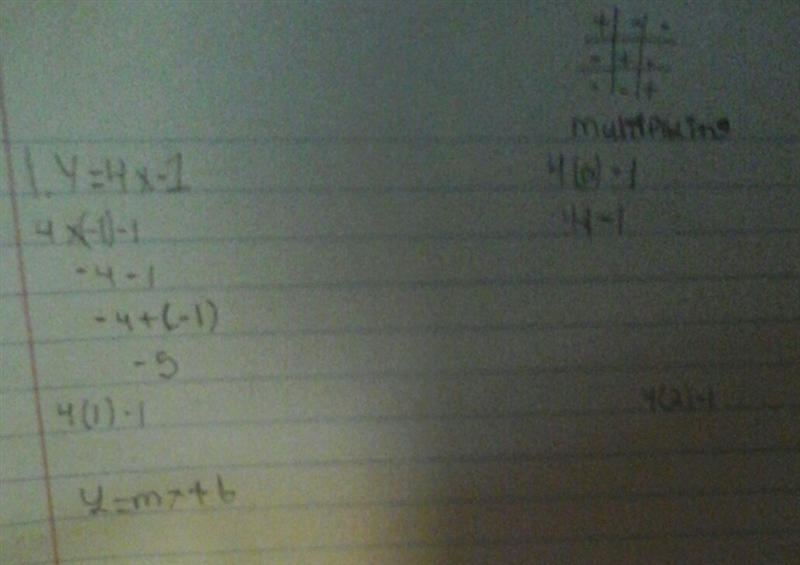 + - -
- + -
- - +
multiplying
1. y=4x-1
4x(-1)-1
-4-1
-4+(-1)
-5
4(1)-1
4(0)-1
4-1
4(2)-1
y=mx+b